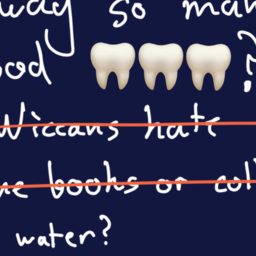 way so man
ood 🦷🦷🦷?
Wiccans hate
ne books or col
water?